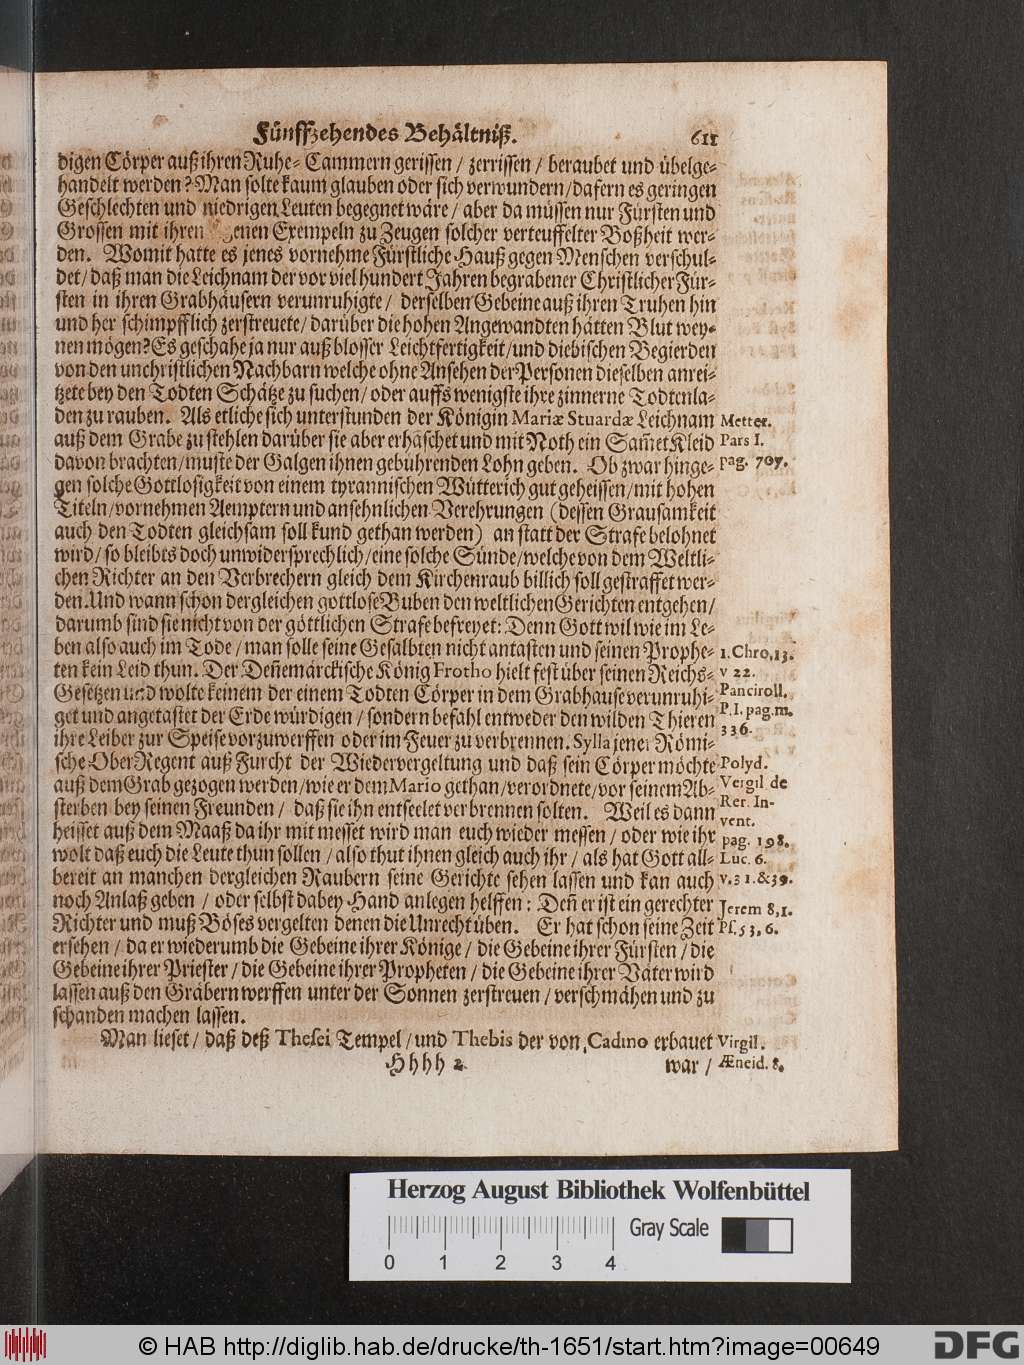 Fünffzehendes Behältniß. 611
digen Cörper auß ihren Ruhe-Cammern gerissen / zerrissen / beraubet und übelge-
handelt werden? Man solte kaum glauben oder sich verwundern / dafern es geringen
Geschlechten und niedrigen Leuten begegnet wäre / aber da müssen nur Fürsten und
Grossen mit ihren Exempeln zu Zeugen solcher verteuffelter Boßheit wer-
den. Womit hatte es jenes vornehme Fürstliche Hauß gegen Menschen verschul-
det / daß man die Leichnam der vor viel hundert Jahren begrabener Christlicher Für-
sten in ihren Grabhäusern verunruhigte / derselben Gebeine auß ihren Truhen hin
und her schimpfflich zerstreuete / darüber die hohen Angewandten hätten Blut wey-
nen mögen? Es geschahe ja nur auß blosser Leichtfertigkeit / und diebischen Begierden
von den unchristlichen Nachbarn welche ohne Ansehen der Personen dieselben anrei-
tzete bey den Todten Schätze zu suchen / oder auffs wenigste ihre zinnerne Todtenla-
den zu rauben. Als etliche sich unterstunden der Königin Mariæ Stuardæ Leichnam
Metter.
auß dem Grabe zu stehlen darüber sie aber erhaschet und mit Noth ein Sam̃et Kleid
Pars I.
davon brachten / muste der Galgen ihnen gebührenden Lohn geben. Ob zwar hinge-
pag. 707.
gen solche Gottlosigkeit von einem tyrannischen Wütterich gut geheissen / mit hohen
Titeln / vornehmen Aemptern und ansehnlichen Verehrungen (dessen Grausamkeit
auch den Todten gleichsam soll kund gethan werden) an statt der Strafe belohnet
wird / so bleibts doch unwidersprechlich / eine solche Sünde / welche von dem Weltli-
chen Richter an den Verbrechern gleich dem Kirchenraub billich soll gestraffet wer-
den. Und wann schon dergleichen gottlose Buben den weltlichen Gerichten entgehen /
darumb sind sie nicht von der göttlichen Strafe befreyet: Denn Gott wil wie im Le-
ben also auch im Tode / man solle seine Gesalbten nicht antasten und seinen Prophe-
1. Chro, 13.
ten kein Leid thun. Der Deñemärckische König Frotho hielt fest über seinen Reichs-
v 22.
Gesetzen und wolte keinem der einem Todten Cörper in dem Grabhause verunruhi-
Panciroll.
get und angetastet der Erde würdigen / sondern befahl entweder den wilden Thieren
P. I. pag. m.
ihre Leiber zur Speise vorzuwerffen oder im Feuer zu verbrennen. Sylla jener Römi-
336.
sche Ober Regent auß Furcht der Wiedervergeltung und daß sein Cörper möchte
Polyd.
auß dem Grab gezogen werden / wie er dem Mario gethan / verordnete / vor seinem Ab-
Vergil de
sterben bey seinen Freunden / daß sie ihn entseelet verbrennen solten. Weil es dann
Rer. In-
vent.
heisset auß dem Maaß da ihr mit messet wird man euch wieder messen / oder wie ihr
pag. 198.
wolt daß euch die Leute thun sollen / also thut ihnen gleich auch ihr / als hat Gott all-
Luc. 6.
bereit an manchen dergleichen Raubern seine Gerichte sehen lassen und kan auch
v. 31. & 39.
noch Anlaß geben / oder selbst dabey Hand anlegen helffen: Deñ er ist ein gerechter
Jerem 8, 1.
Richter und muß Böses vergelten denen die Unrecht üben. Er hat schon seine Zeit
Ps. 53, 6.
ersehen / da er wiederumb die Gebeine ihrer Könige / die Gebeine ihrer Fürsten / die
Gebeine ihrer Priester / die Gebeine ihrer Propheten / die Gebeine ihrer Väter wird
lassen auß den Gräbern werffen unter der Sonnen zerstreuen / verschmähen und zu
schanden machen lassen.
Man lieset / daß deß Thesei Tempel / und Thebis der von Cadmo erbauet
Virgil.
Æneid. 8.
Hhhh 2 war /
Herzog August Bibliothek Wolfenbüttel
Gray Scale
0 1 2 3 4
© HAB http://diglib.hab.de/drucke/th-1651/start.htm?image=00649
DFG